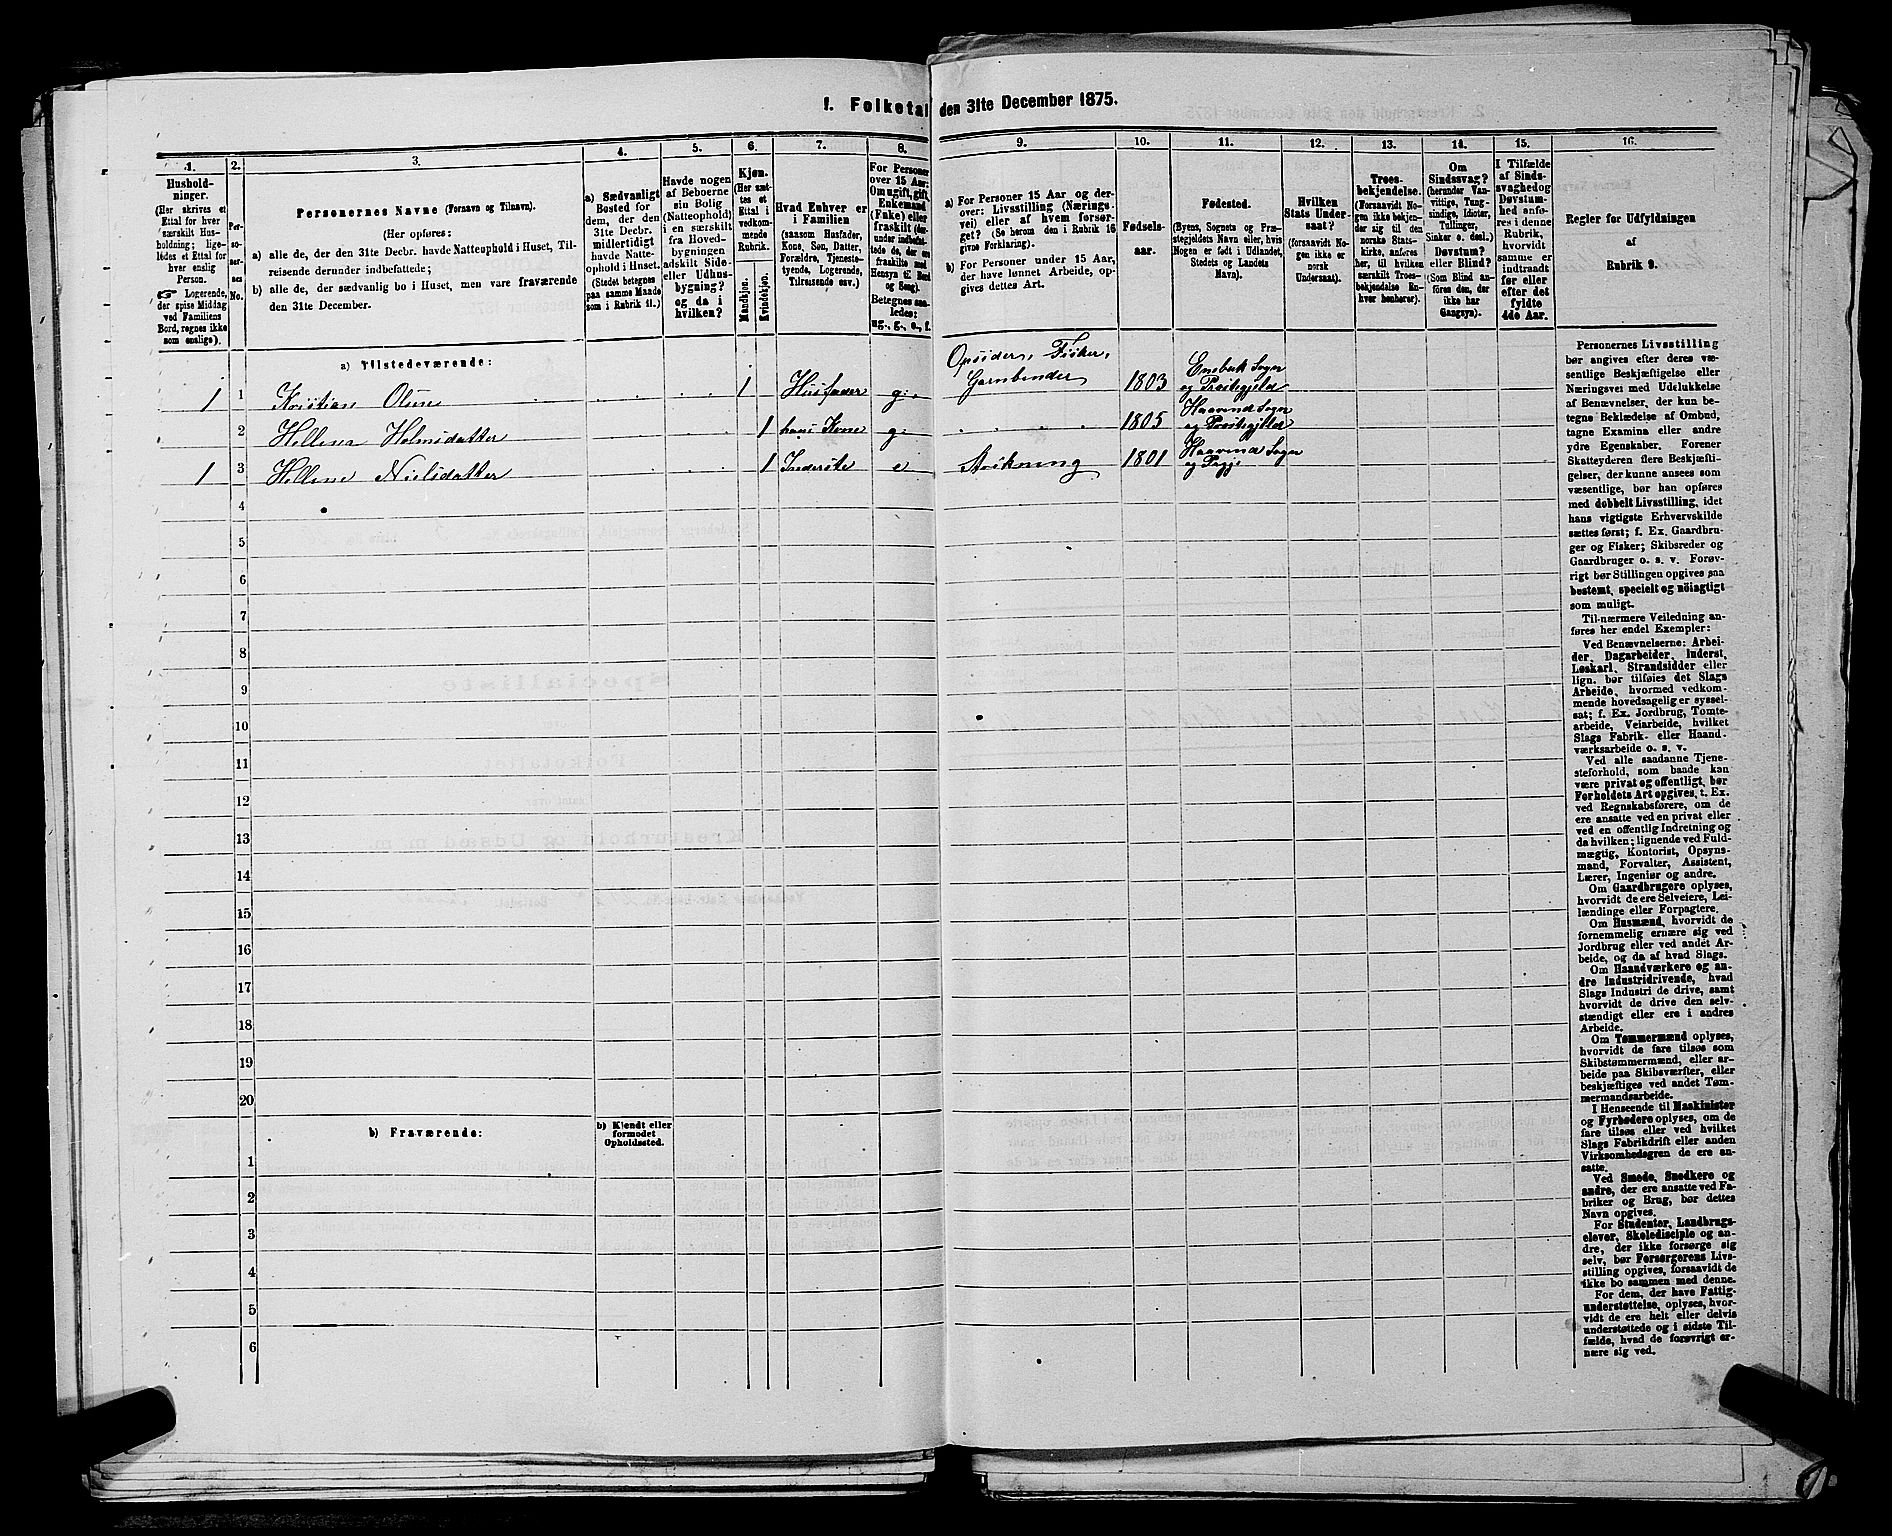 1. Folketal den 31te December 1875.
1.
2.
3.
4.
5.
6.
7.
8.
9.
10.
11.
12.
13.
14.
15.
16.
Hushold-
ninger.
(Her skrives et
Ettal for hver
særskilt Hus-
holdning; lige-
ledes et Ettal for
hver enslig
Person.
☞ Logerende,
der spise Middag
ved Familiens
Bord, regnes ikke
som enslige).
Per-
so-
ner-
nes
No.
Personernes Navne (Fornavn og Tilnavn).
(Her opføres:
a) alle de, der den 31te Decbr. havde Natteophold i Huset, Til-
reisende derunder indbefattede;
b) alle de, der sædvanlig bo i Huset, men vare fraværende
den 31te December.
a) Sædvanligt
Bosted for
dem, der den
31te Decbr.
midlertidigt
havde Natte-
ophold i Huset.
(Stedet betegnes
paa samme Maade
som i Rubrik 11.)
Havde nogen
af Beboerne
sin Bolig
(Natteophold)
i en særskilt
fra Hoved-
bygningen
adskilt Side-
eller Udhus-
bygning?
og da i
hvilken?
Kjøn.
(Her sæt-
tes et
Ettal i
vedkom-
mende
Rubrik.
Mandkjøn.
Kvindekjøn.
Hvad Enhver er
i Familien
(saasom Husfader,
Kone, Søn, Datter,
Forældre, Tjeneste-
tyende, Logerende,
Tilreisende osv.)
For Personer
over 15 Aar:
Om ugift, gift,
Enkemand
(Enke) eller
fraskilt
Betegnes saa-
ledes:
ug., g., e., f.
a) For Personer 15 Aar og der-
over: Livsstilling (Nærings-
vei) eller af hvem forsør-
get? (Se herom den i Rubrik 16
givne Forklaring).
b) For Personer under 15 Aar,
der have lønnet Arbeide, op-
gives dettes Art.
Fødsels-
aar.
Fødested.
(Byens, Sognets og Præ-
stegjeldets Navn eller, hvis
Nogen er født i Udlandet,
Stedets og Landets
Navn).
Hvilken
Stats Under-
saat?
(forsaavidt No-
gen ikke er
norsk
Undersaat).
Troes-
bekjendelse.
(Forsaavidt No-
gen ikke bekjen-
der sig til den
norske Stats-
kirke, anføres
her, til hvilken
særskilt Troes-
bekjendelse En-
hver henhører).
Om
Sindssvag?
(herunder Van-
vittige, Tung-
sindige, Idioter,
Tullinger,
Sinker o. desl.)
Døvstum?
eller Blind?
(Som Blind an-
føres den, der
ikke har
Gangsyn).
I Tilfælde
af Sinds-
svaghed og
Døvstum-
hed anfø-
res i denne
Rubrik,
hvorvidt
samme er
indtraadt
før eller
efter det
fyldte
4de Aar.
Regler for Udfyldningen
af
Rubrik 9.
a) Tilstedeværende:
Opsider, Fisker,
1 1 Kristian Olsen 1 Husfader g. Garnbinder 1803 Enebak Sogn
og Præstegjeld
2 Hellena Holmsdatter 1 hans Kone g. 1805 Haavind Sogn
og Præstegjeld
1 3 Hellene Nielsdatter 1 Inderste e 1801 Haavind Sogn
4
5
6
7
8
9
10
11
12
13
14
15
16
17
18
19
20
b) Fraværende:
b) Kjendt eller
formodet
Opholdssted.
1
2
3
4
5
6
Personernes Livsstilling
bør angives efter deres væ-
sentlige Beskjæftigelse eller
Næringsvei med Udelukkelse
af Benævnelser, der kun be-
tegne Beklædelse af Ombud,
tagne Examina eller andre
ydre Egenskaber. Forener
Skatteyderen flere Beskjæfti-
gelser, der kunne ansees som
væsentlige, bør han opføres
med dobbelt Livsstilling, idet
hans vigtigste Erhvervskilde
sættes først; f. Ex. Gaardbru-
ger og Fisker; Skibsreder og
Gaardbruger o. s. v. Forøv-
rigt bør Stillingen opgives saa
bestemt, specielt og nöiagtigt
som muligt.
Til nærmere Veiledning an-
føres her endel Exempler:
Ved Benævnelserne: Arbei-
der, Dagarbeider, Inderst,
Løskarl, Strandsidder eller
lign. bør tilføies det Slags
Arbeide, hvormed vedkom-
mende hovedsagelig er syssel-
sat; f. Ex. Jordbrug, Tomte-
arbeide, Veiarbeide, hvilket
Slags Fabrik- eller Haand-
værksarbeide o. s. v.
Ved alle saadanne Tjene-
steforhold, som baade kan
være privat og offentligt, bør
Forholdets Art opgives, t. Ex.
ved Regnskabsførere, om de
ere ansatte ved en privat eller
ved en offentlig Indretning og
da hvilken; lignende ved Fuld-
mægtig, Kontorist, Opsyns-
mand, Forvalter, Assistent,
Lærer, Ingeniør og andre.
Om Gaardbrugere oplyses,
hvorvidt de ere Selveiere, Lei-
lændinge eller Forpagtere.
Om Husmænd, hvorvidt de
fornemmelig ernære sig ved
Jordbrug eller ved andet Ar-
beide, og da af hvad Slags.
Om Haandværkere og an-
dre Industridrivende, hvad
Slags Industri de drive, samt
hvorvidt de drive den selv-
stændigt eller ere i andres
Arbeide.
Om Tømmermænd oplyses,
hvorvidt de fare tilsøs som
Skibstømmermænd, eller ar-
beide paa Skibsværfter, eller
beskjæftiges ved andet Tøm-
mermandsarbeide.
I Henseende til Maskinister
og Fyrbødere oplyses, om de
fare tilsøs eller ved hvilket
Slags Fabrikdrift eller anden
Virksomhedsgren de ere an-
satte.
Ved Smede, Snedkere og
andre, der ere ansatte ved Fa-
briker og Brug, bør dettes
Navn opgives.
For Studenter, Landbrugs-
elever, Skoledisciple og an-
dre, der ikke forsørge sig
selv, bør Forsørgerens Livs-
stilling opgives, forsaavidt de
ikke bo sammen med denne.
For dem, der have Fattig-
understøttelse, oplyses, hvor-
vidt de ere helt eller delvis
understøttede og i sidste Til-
fælde, hvad de forøvrigt er-
nære sig ved.